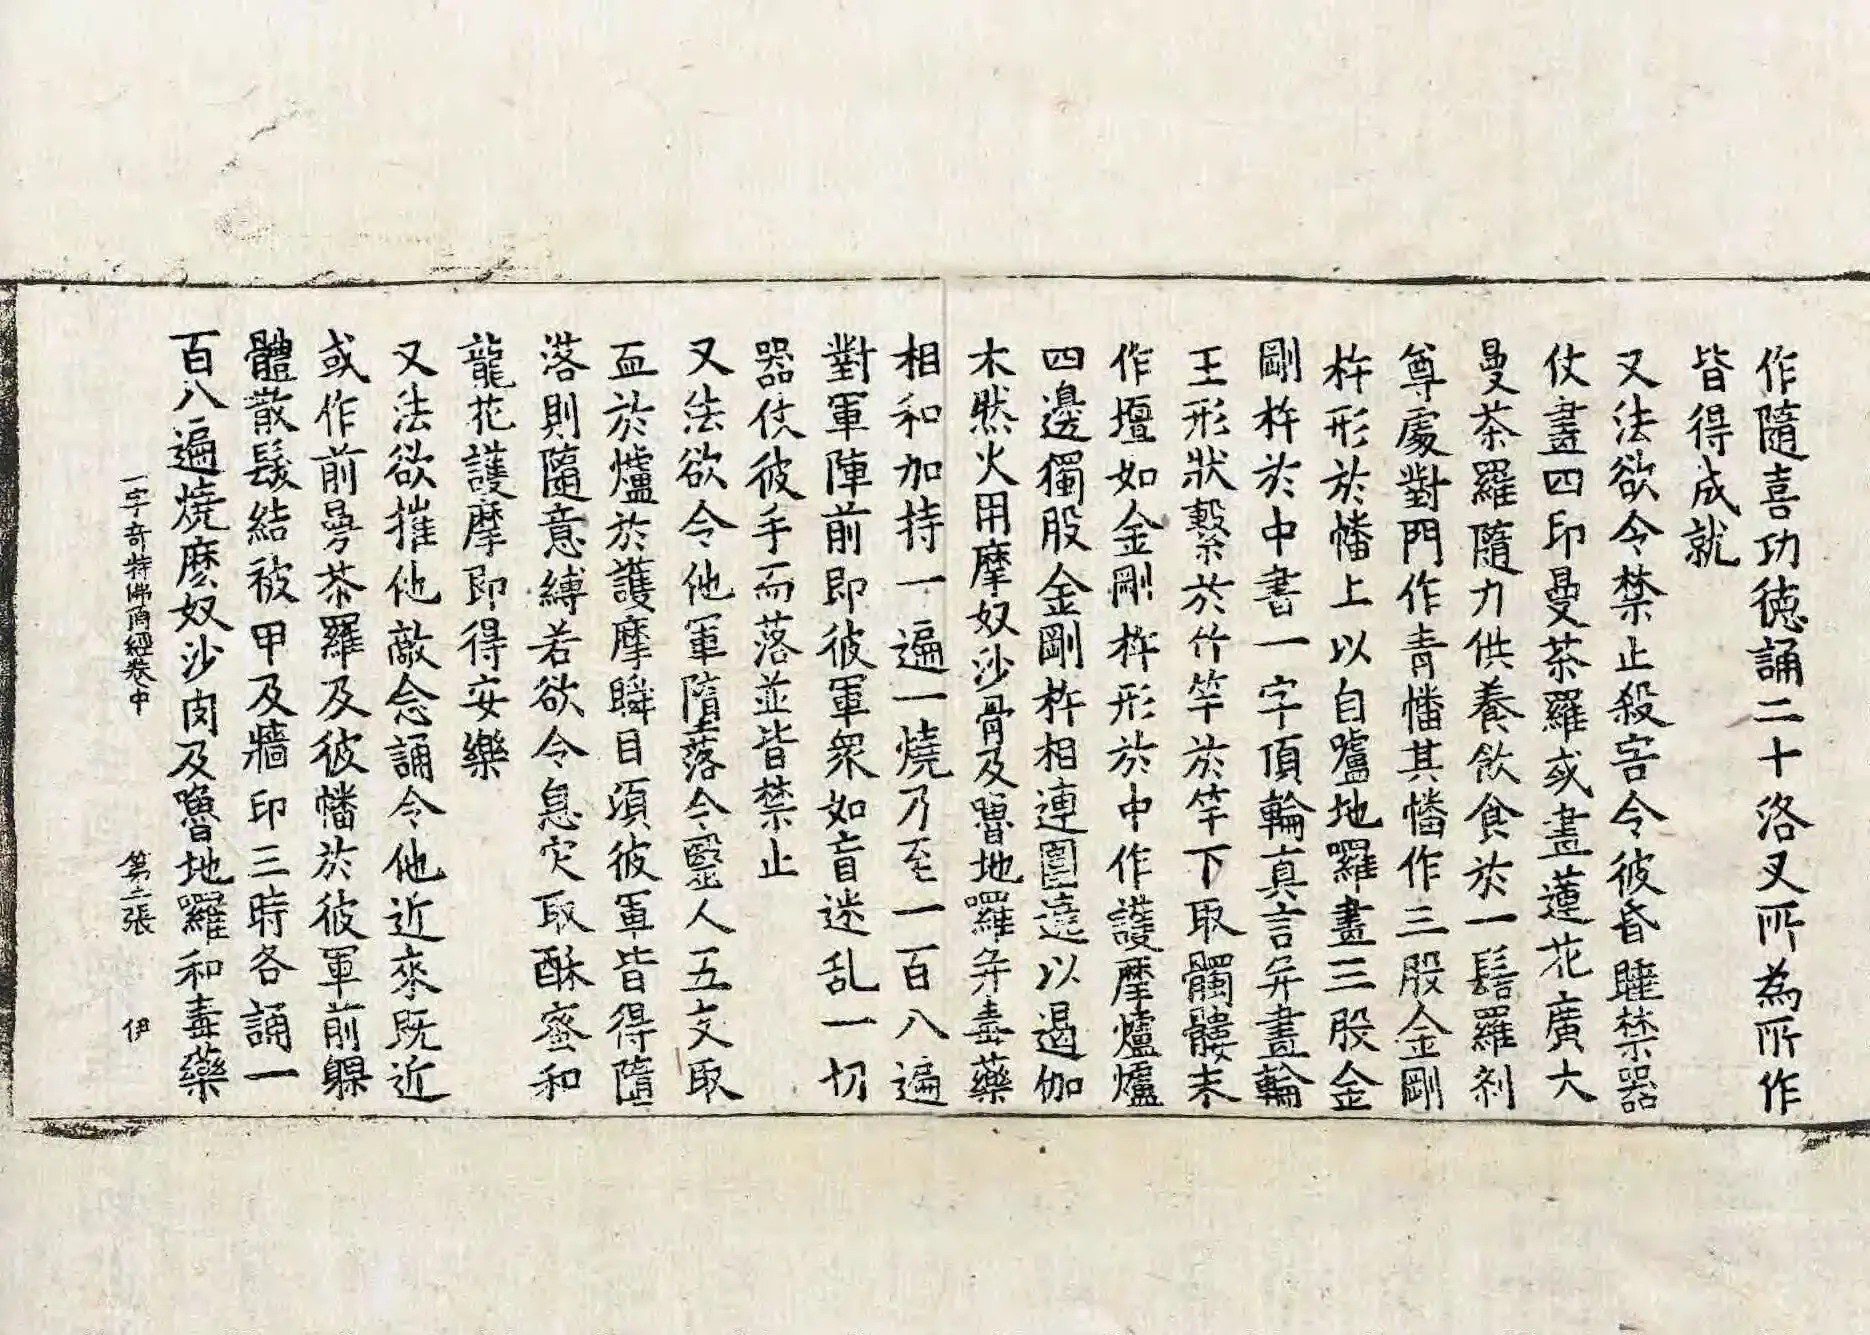 作隨喜功徳誦二十洛叉所為所作
皆得成就
又法欲令禁止殺害令彼昏睡禁器
仗畫四印曼茶羅或畫蓮花廣大
曼茶羅隨力供養飲食於一髻羅剎
尊處對門作青幡其幡作三股金剛
杵形於幡上以自嚧地羅畫三股金
剛杵於中書一字頂輪真言并畫輪
王形狀繫於竹竿於竿下取髑髏末
作壇如金剛杵形於中作護摩爐爐
四邊獨股金剛杵相連圍遶以遏伽
木然火用摩奴沙骨及嚕地羅并毒藥
相和加持一遍一燒乃至一百八遍
對軍陣前即彼軍眾如盲迷乱一切
器仗彼手而落並皆禁止
又法欲令他軍墮落令毉人五支取
血於爐於護摩瞬目須彼軍皆得墮
落則隨意縛若欲令息灾取酥蜜和
龍花護摩即得安樂
又法欲摧他敵念誦令他近來既近
或作前曼茶羅及彼幡於彼軍前躶
體散髮結被甲及牆印三時各誦一
百八遍燒麽奴沙肉及嚕地羅和毒藥
一字奇特佛頂經卷中 第 張 伊